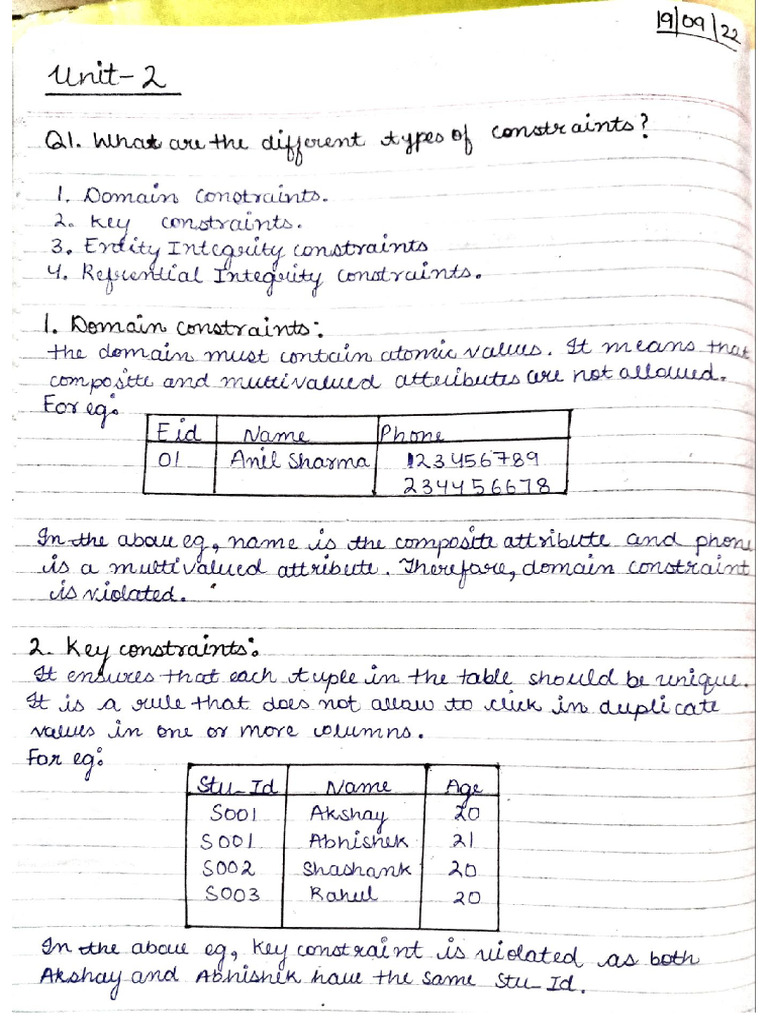 19/09/22
Unit-2
Q1. What are the different types of constraints?
1. Domain constraints.
2. Key constraints.
3. Entity Integrity constraints
4. Refrential Integrity constraints.
1. Domain constraints:
the domain must contain atomic values. It means that
composite and multivalued attributes are not allowed.
For eg:
Eid Name Phone
01 Anil Sharma 123456789
234456678
In the above eg, name is the composite attribute and phone
is a multivalued attribute. Therefore, domain constraint
is violated.
2. Key constraints:
It ensures that each tuple in the table should be unique.
It is a rule that does not allow to click in duplicate
values in one or more columns.
For eg:
Stu_Id Name Age
S001 Akshay 20
S001 Abhishek 21
S002 Shashank 20
S003 Rahul 20
In the above eg, Key constraint is violated as both
Akshay and Abhishek have the same Stu_Id.